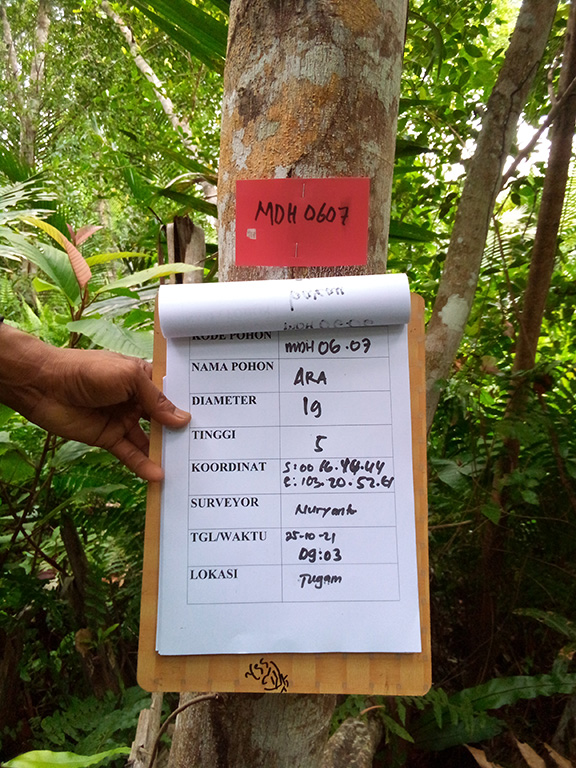 MDH 0607
KODE POHON MDH 06.07
NAMA POHON ARA
DIAMETER 19
TINGGI 5
KOORDINAT S:00 16.44.44
E:103.20.52.61
SURVEYOR Nuryanto
TGL/WAKTU 25-10-21
09:03
LOKASI Tugam